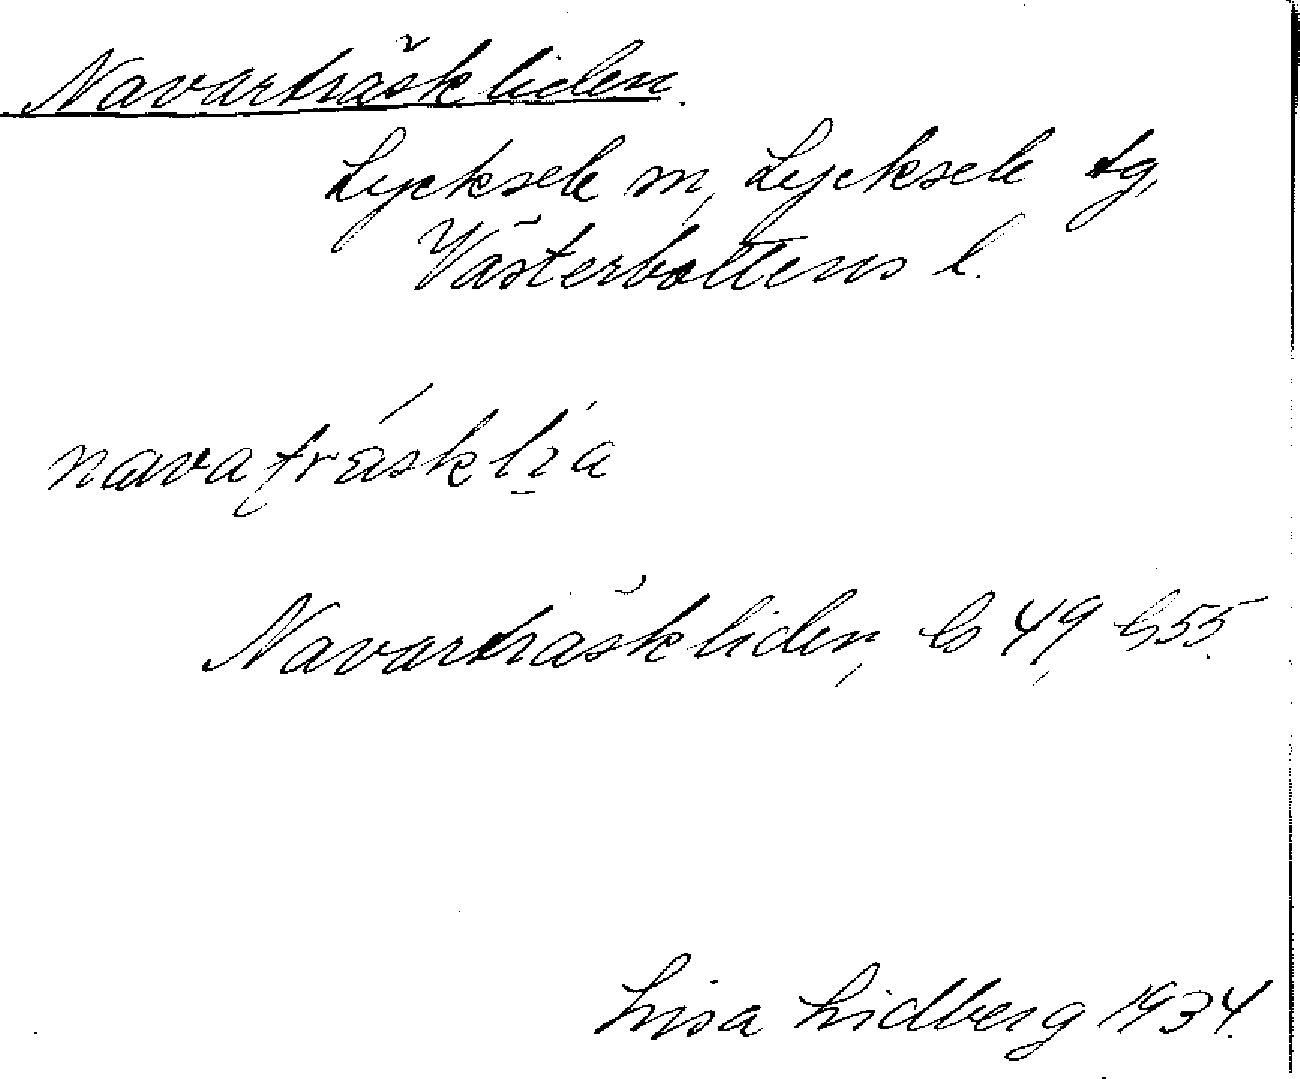 Navarträskliden.
Lycksele m, Lycksele tg,
Västerbottens l.
navatrásklia
Navarträskliden, Gs 49, Gs55.
Lisa Lidberg 1934.